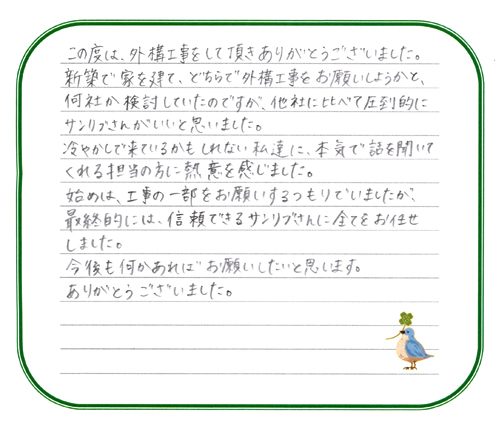 この度は、外構工事をして頂きありがとうございました。
新築で家を建て、どちらで外構工事をお願いしようかと、
何社か検討していたのですが、他社に比べて圧倒的に
サンリブさんがいいと思いました。
冷やかしで来ているかもしれない私達に、本気で話を聞いて
くれる担当の方に熱意を感じました。
始めは、工事の一部をお願いするつもりでいましたが、
最終的には、信頼できるサンリブさんに全てをお任せ
しました。
今後も何かあればお願いしたいと思います。
ありがとうございました。